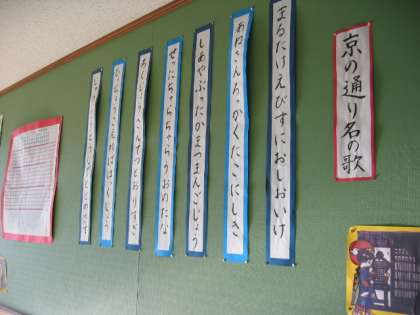 京の通り名の歌
まるたけえびすにおしおいけ
あねさんろっかくたこにしき
しあやぶったかまつまんごじょう
せったちゃらちゃらうおのたな
ろくじょうさんてつとおりすぎ
こえれば
とどめさす